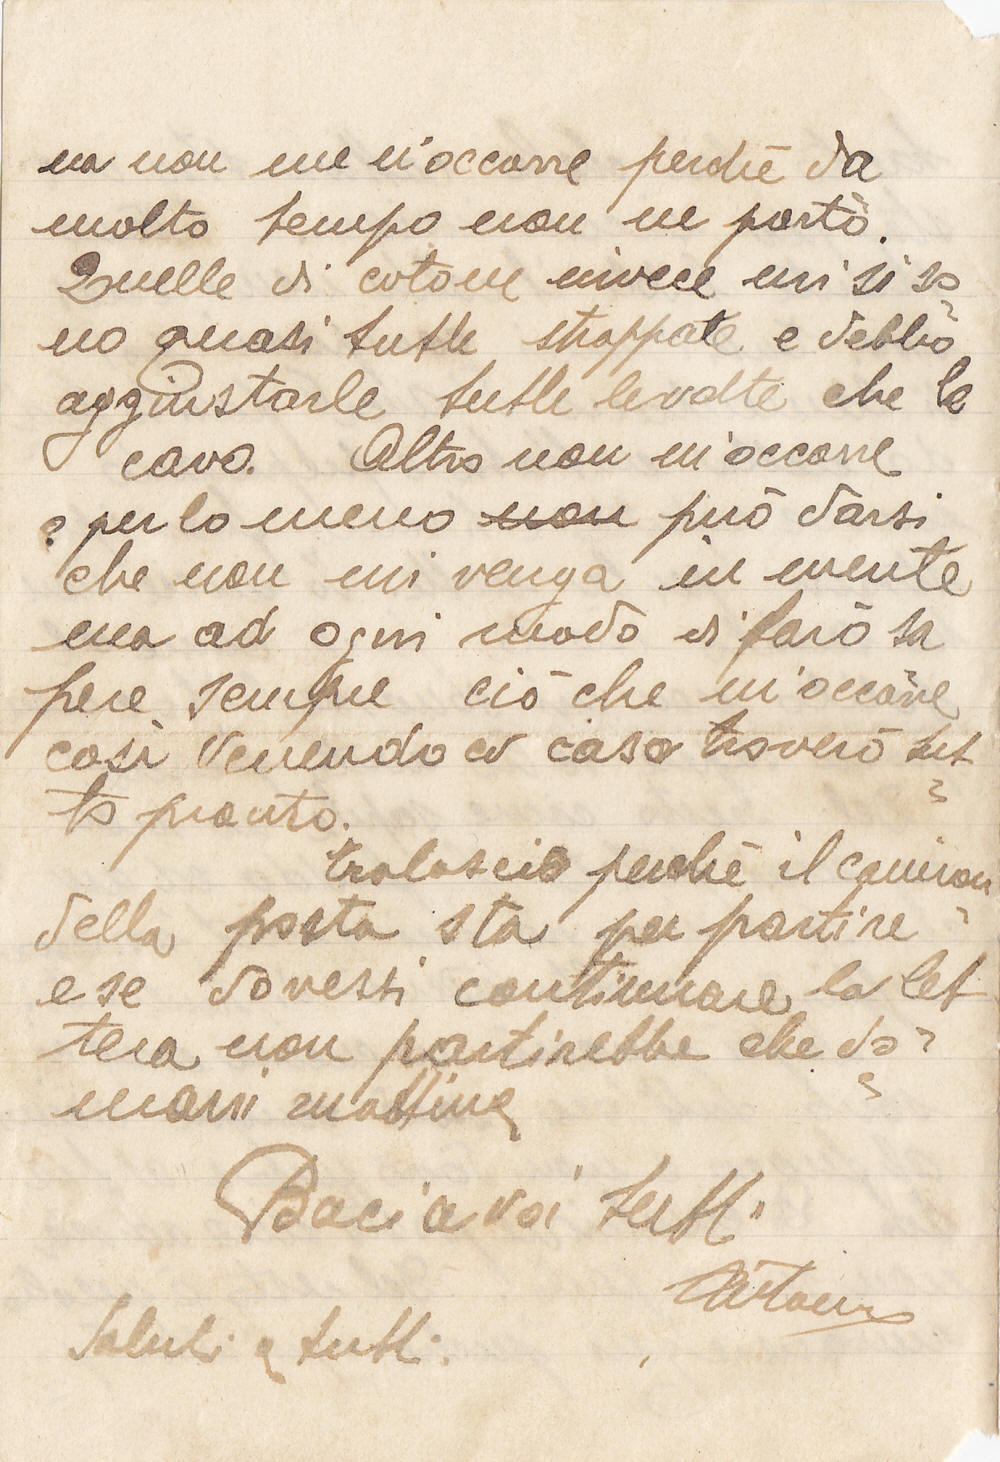 na non me n'occorre perchè da
molto tempo non ne portò.
Quelle di cotone invece mi si so
no quasi tutte strappate e debbo
aggiustarle tutte le volte che le
cavo. Altro non m'occorre
o per lo meno non può darsi
che non mi venga in mente
ma ad ogni modo vi farò sa
pere sempre ciò che m'occorre
così venendo a casa troverò tut
to pronto.
tralascio perchè il camion
della posta sta per partire
e se dovessi continuare la let
tera non partirebbe che do
mani mattina
Baci a voi tutti
Saluti a tutti.